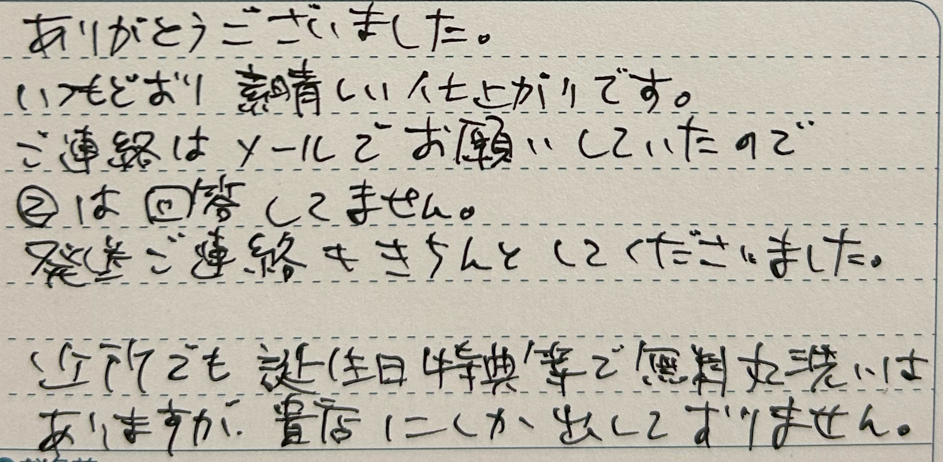 ありがとうございました。
いつもどおり素晴しい仕上がりです。
ご連絡はメールでお願いしていたので
②は回答してません。
発送ご連絡もきちんとしてくださいました。
近所でも誕生日特典等で無料丸洗いは
ありますが、貴店にしか出しておりません。